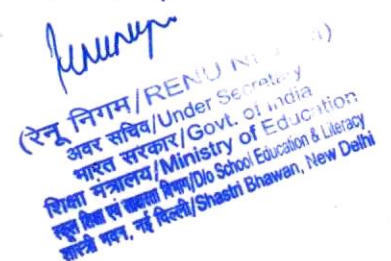 (रेनू निगम/RENU NIGAM)
अवर सचिव/Under Secretary
भारत सरकार/Govt. of India
शिक्षा मंत्रालय/Ministry of Education
स्कूल शिक्षा एवं साक्षरता विभाग/D/o School Education & Literacy
शास्त्री भवन, नई दिल्ली/Shastri Bhawan, New Delhi